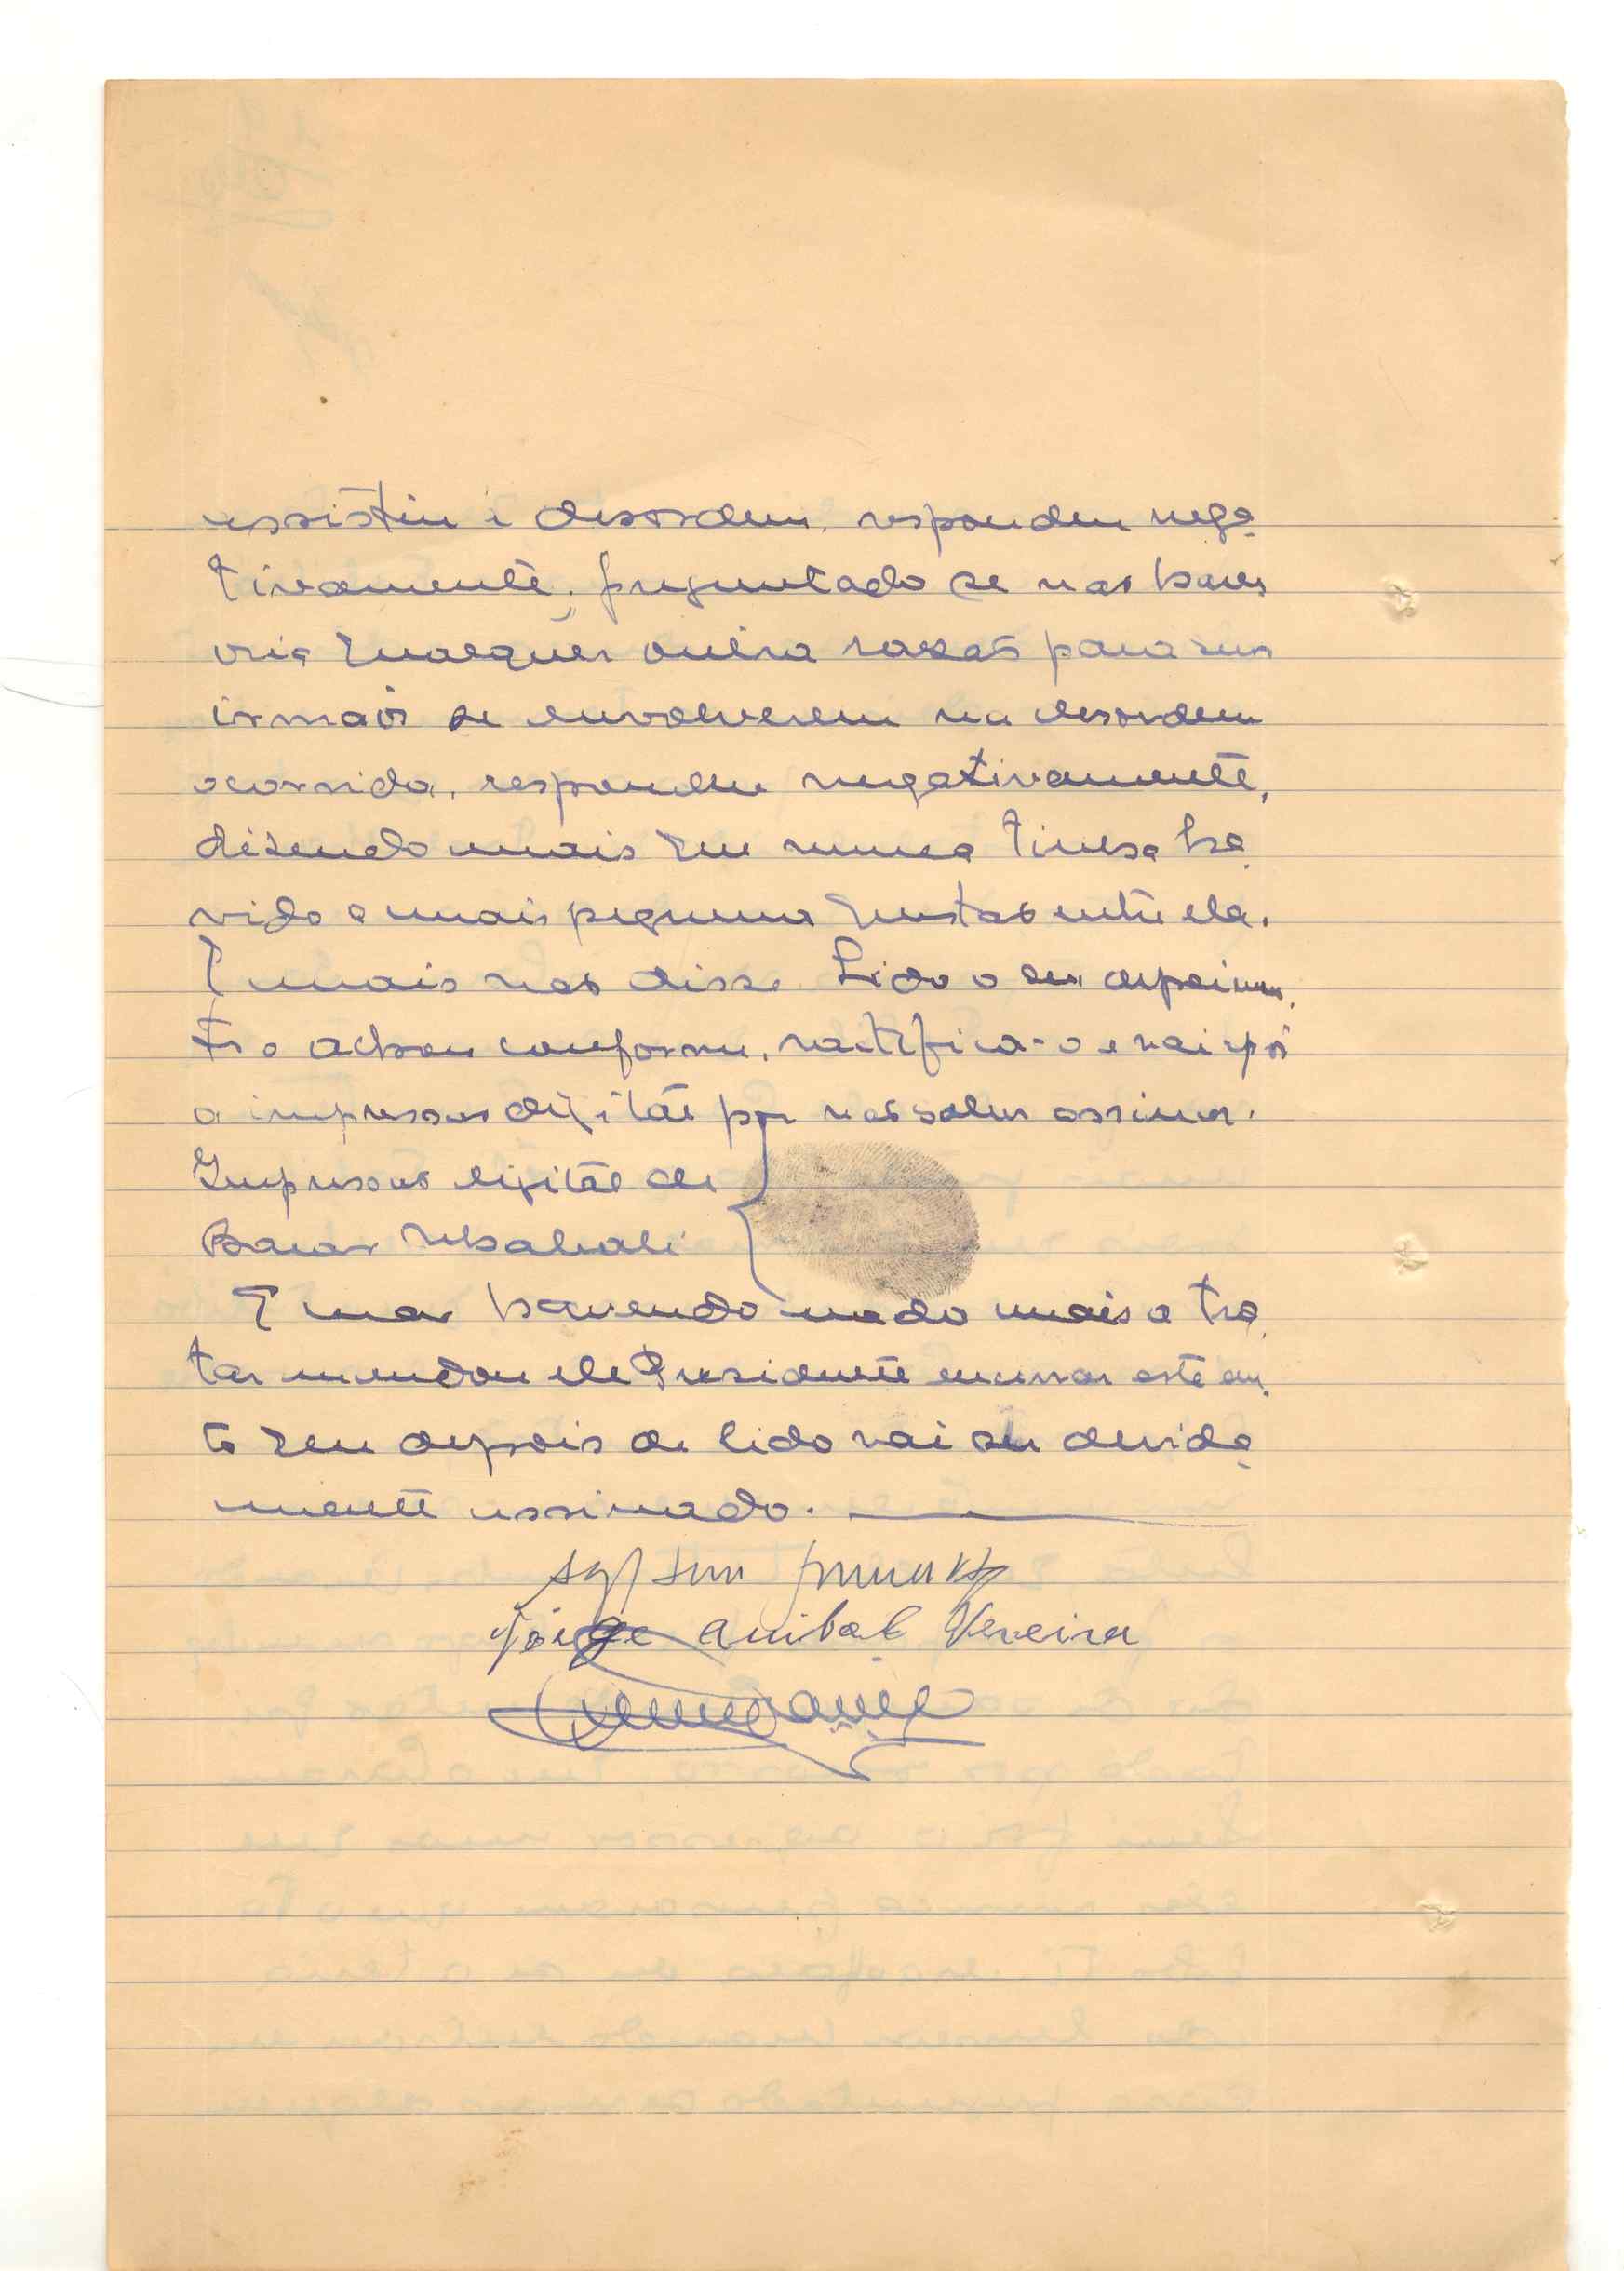 assistiu à desordem, respondeu nega-
tivamente; preguntado se não have-
ria qualquer outra razão para seus
irmãos se envolverem na desordem
ocorrida, respondeu negativamente,
dizendo mais que nunca tivesse ha-
vido a mais pequena questão entre ela.
E mais não disse. Lido o seu depoimen-
to o achou conforme, ratifica-o e vai apôr
a impressão digital por não saber assinar.
Impressão digital de
E não havendo nada mais a tra-
tar mandou ele Presidente encerrar este au-
to que depois de lido vai ser devida-
mente assinado.
Jorge Anibal Pereira